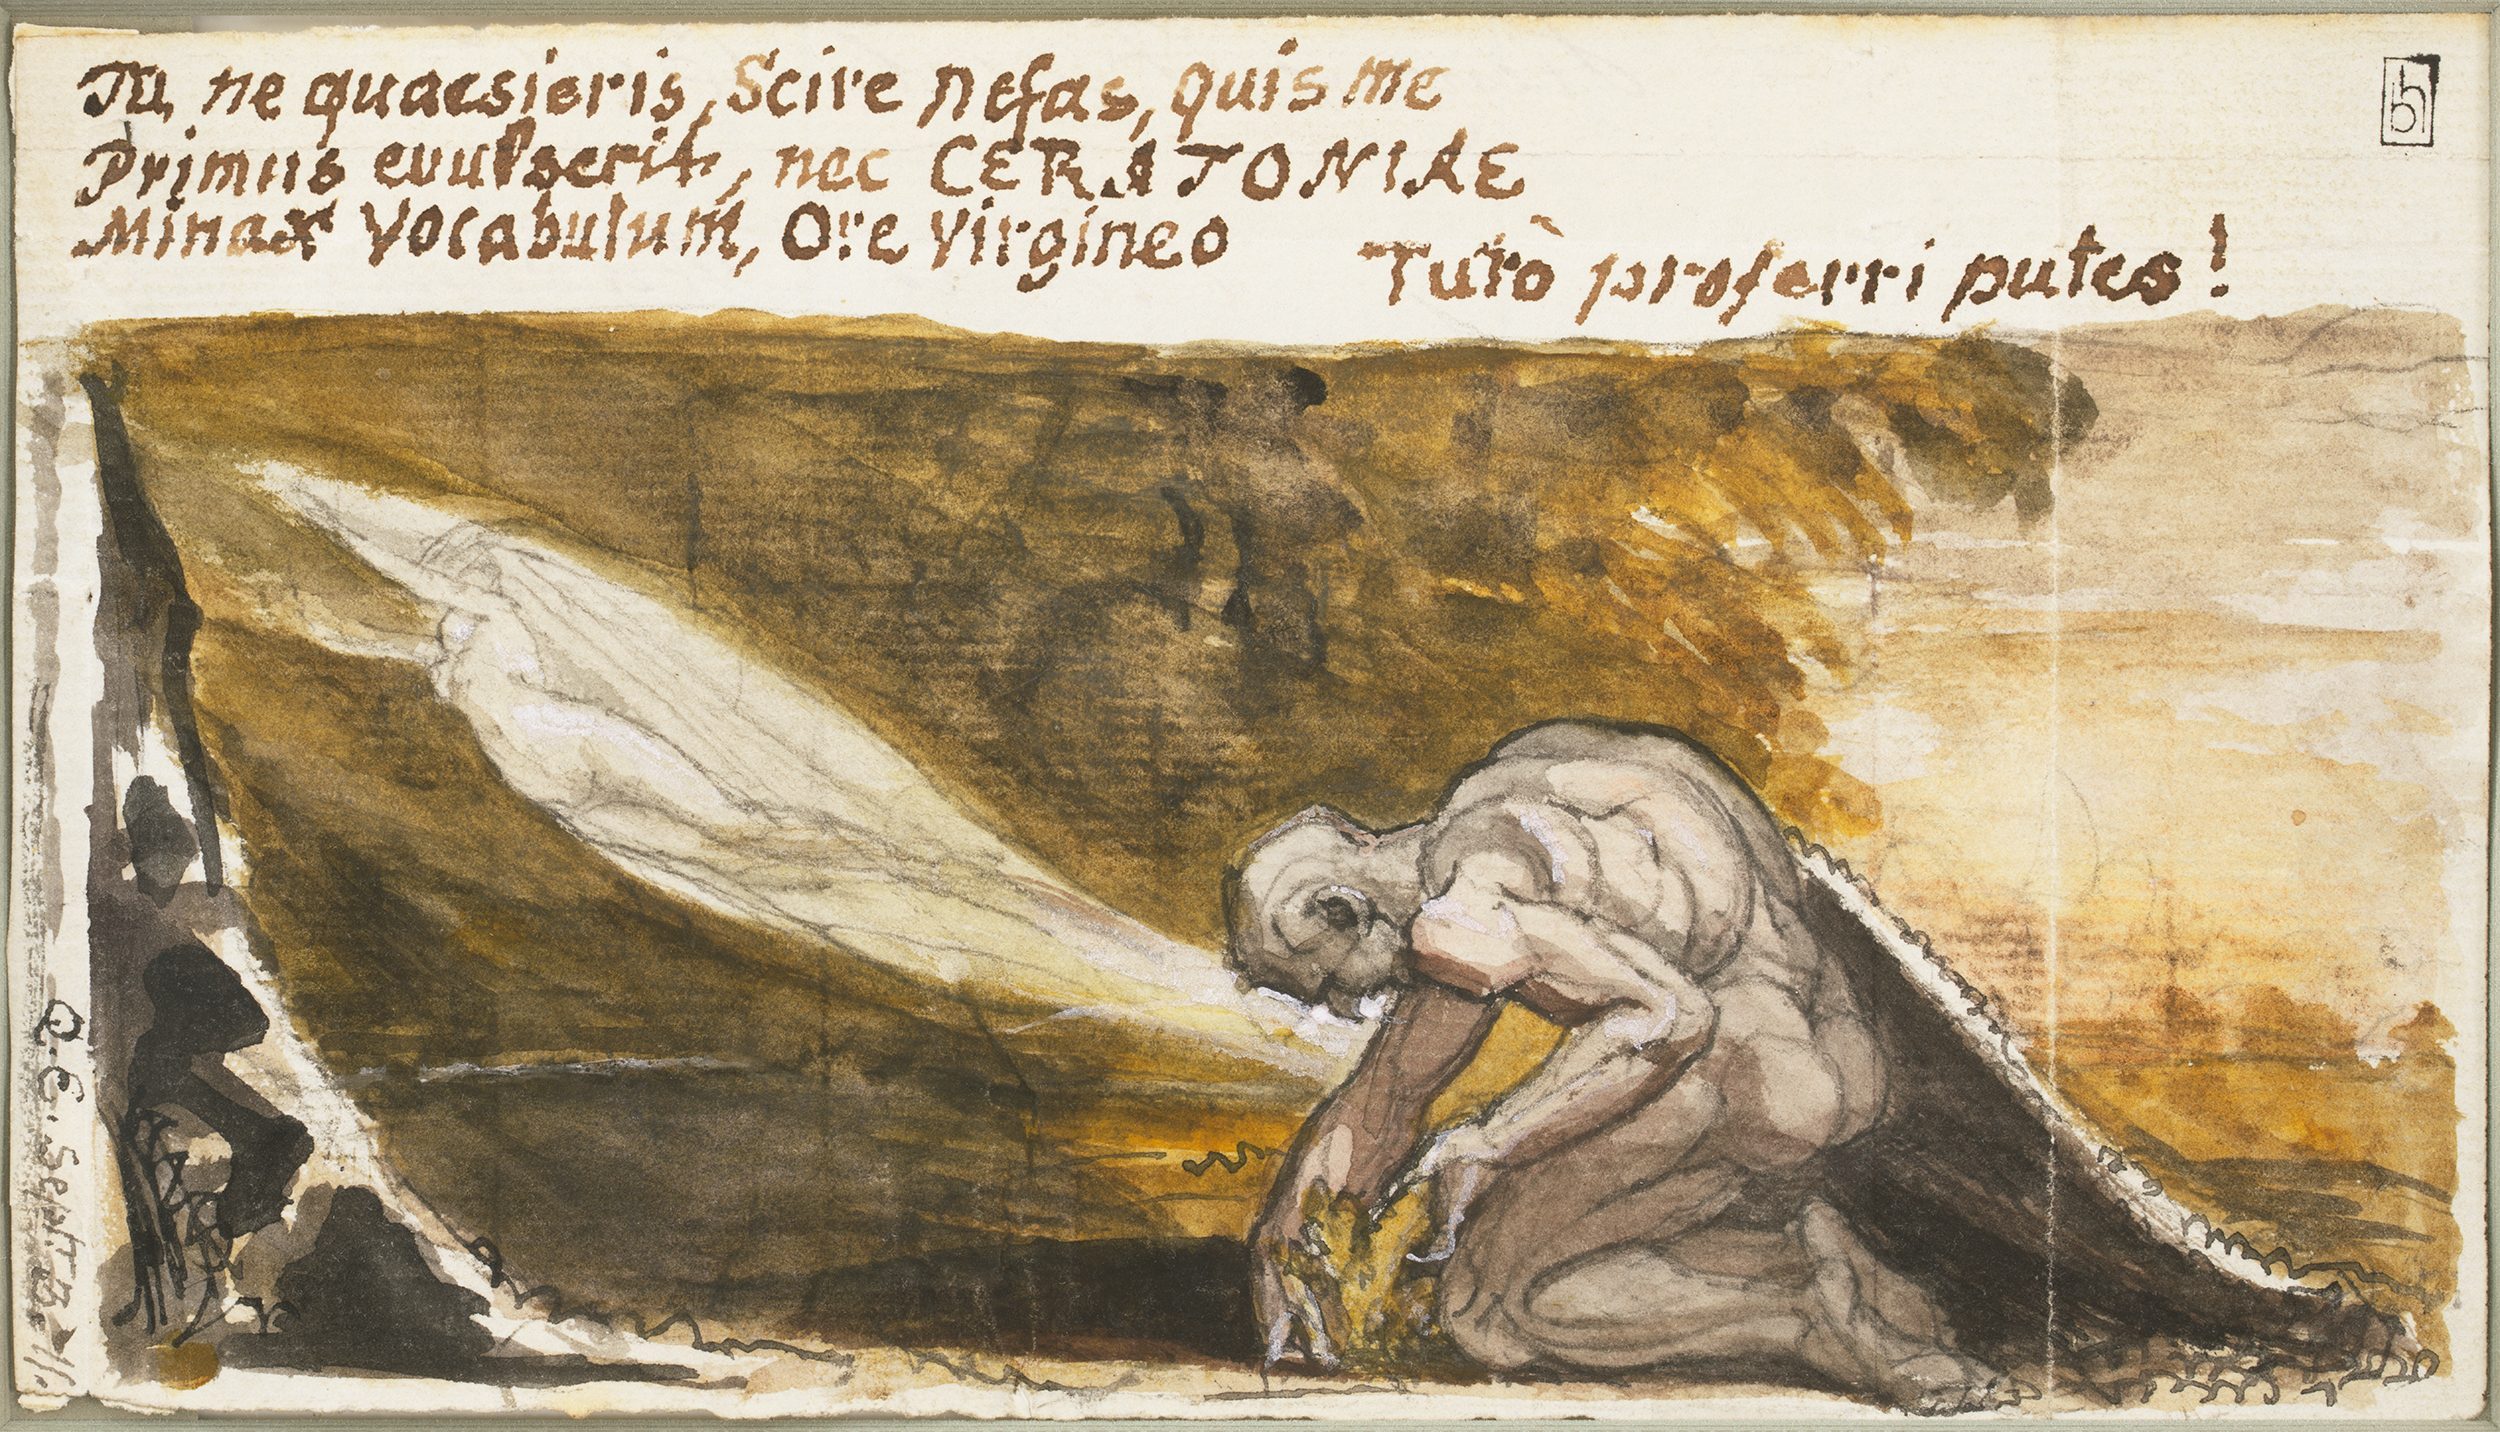 Tu ne quaesieris, Scire nefas, quis me
Primus euulserit, nec CERATONIAE
Minax Vocabulum, Ore Virgineo
Tutò proferri putes!